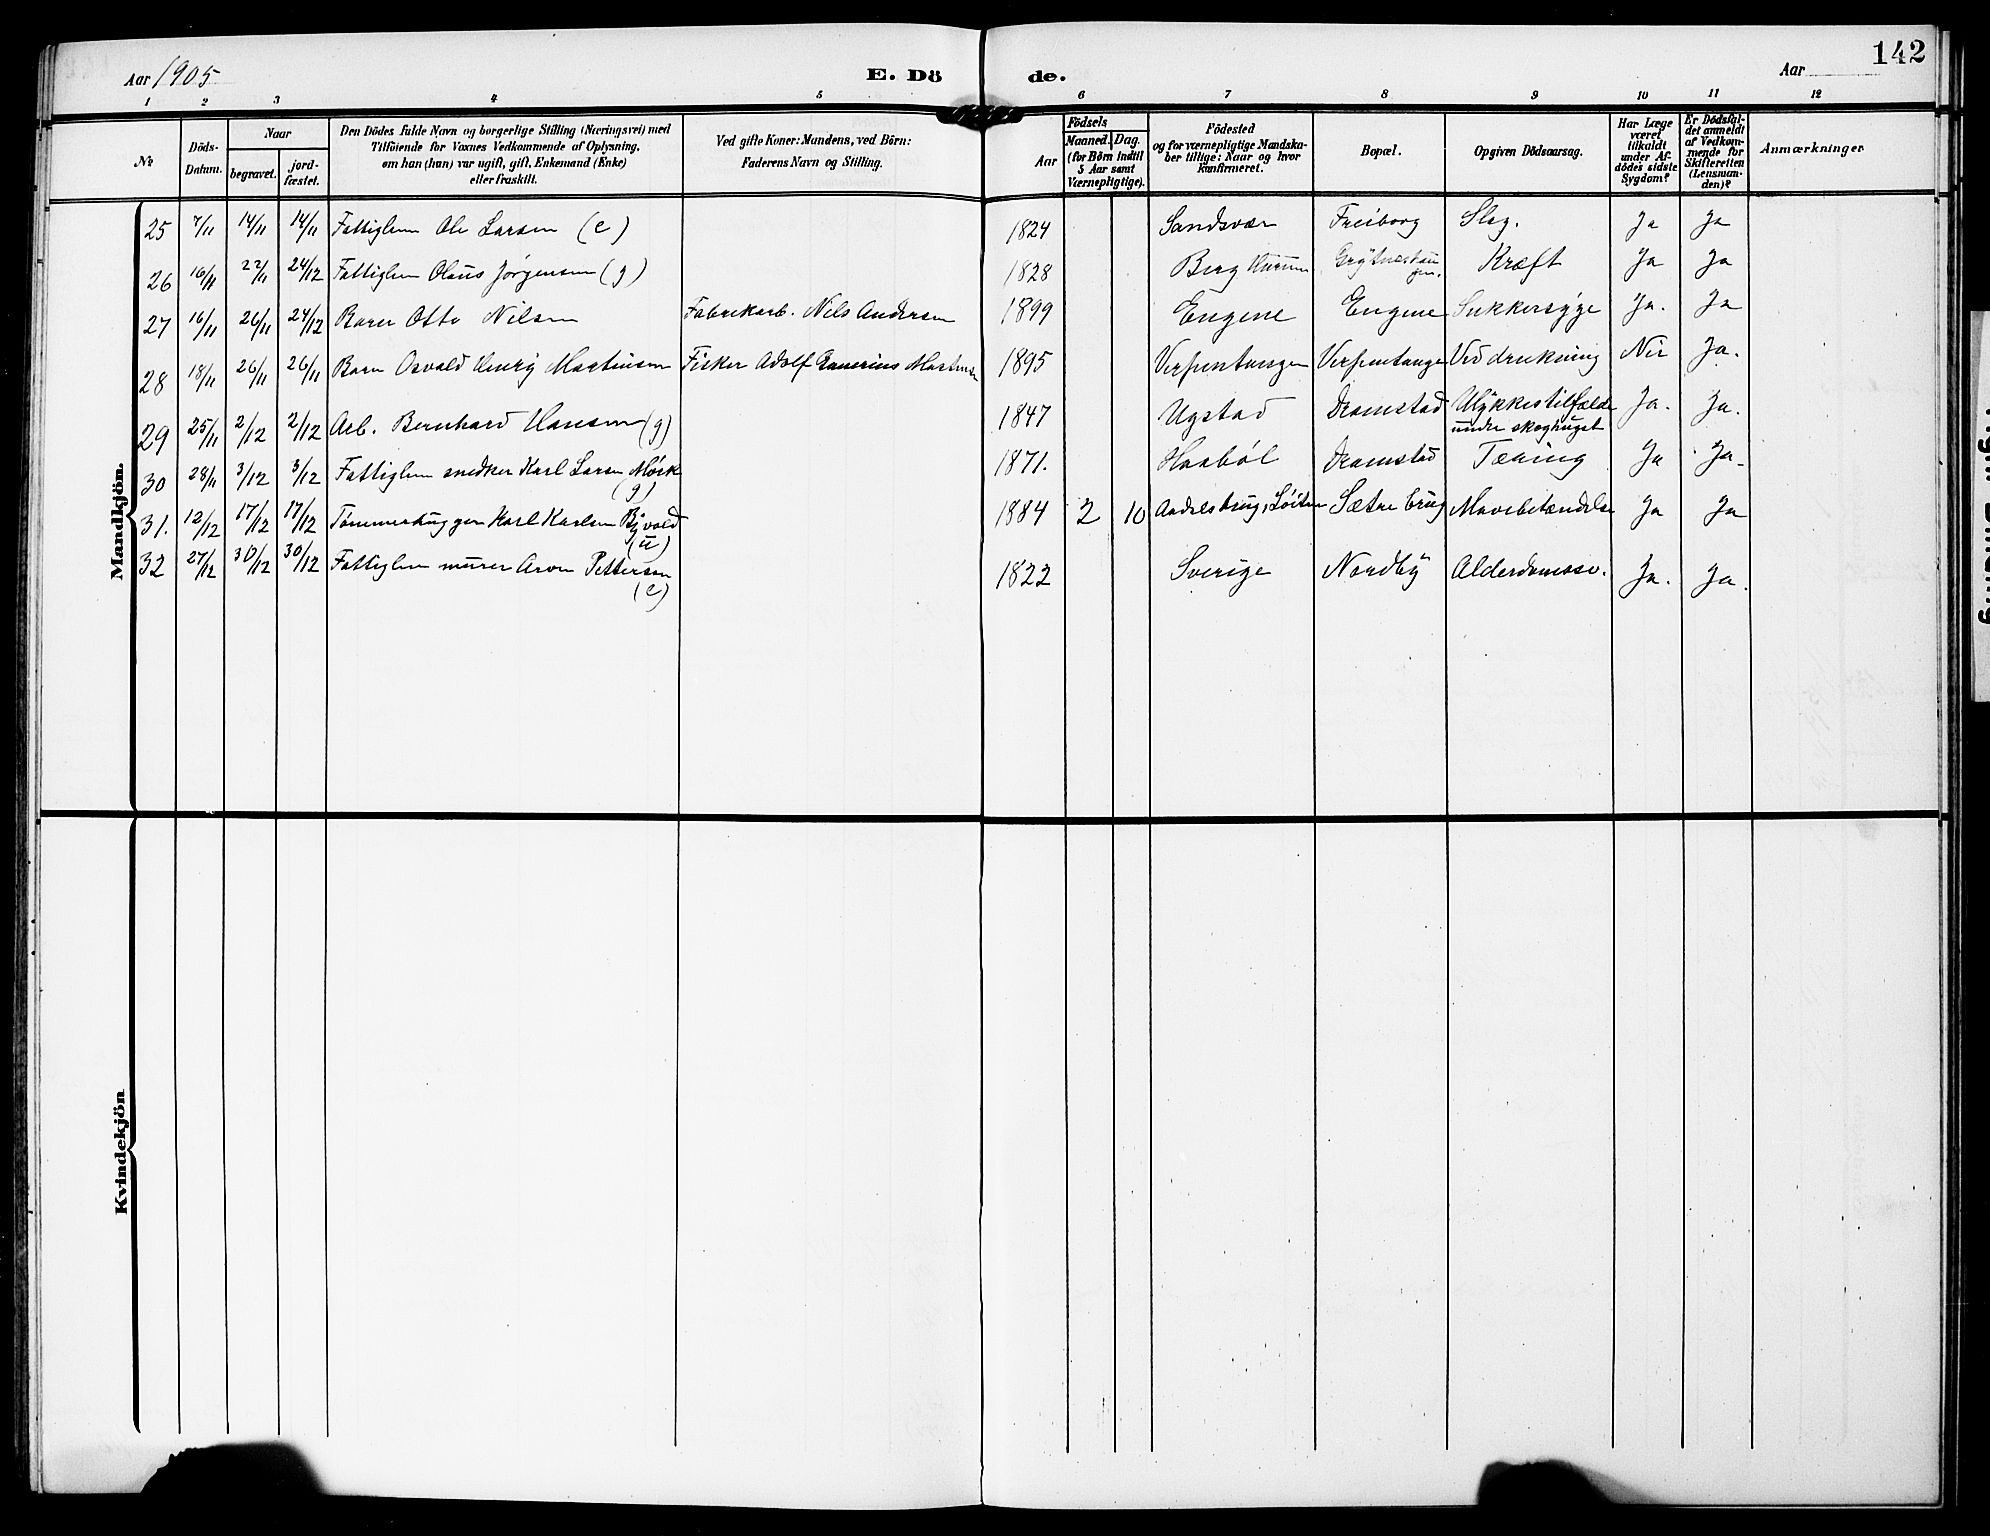 Aar 1905
E. Dö
de.
Aar
142
1 2 3 4 5 6 7 8 9 10 11 12
No
Döds-
Datum.
Naar
begravet.
jord-
fæstet.
Den Dödes fulde Navn og borgerlige Stilling (Næringsvei) med
Tilföiende for Voxnes Vedkommende af Oplysning,
om han (hun) var ugift, gift, Enkemand (Enke)
eller fraskilt.
Ved gifte Koner: Mandens, ved Börn:
Faderens Navn og Stilling.
Födsels
Aar
Maaned. Dag.
(for Börn indtil
5 Aar samt
Værnepligtige).
Födested
og for værnepligtige Mandska-
ber tillige: Naar og hvor
konfirmeret.
Bopæl.
Opgiven Dödsaarsag.
Har Læge
været
tilkaldt
under Af-
dödes sidste
Sygdom?
Er Dödsfal-
det anmeldt
af Vedkom-
mende for
Skifteretten
(Lensman-
den)?
Anmærkninger
Mandkjön.
25 7/11 14/11 14/11 Fattiglem Ole Larsen (e) 1824 Sandsvær Freiborg Slag. Ja Ja
26 16/11 22/11 24/12 Fattiglem Olaus Jørgensen (g) 1828 Berg Hurum Kræft Ja Ja
27 16/11 26/11 24/12 Barn Otto Nilsen Fabrikarb. Nils Andersen 1899 Engene Engene Sukkersyge Ja. Ja
28 18/11 26/11 26/11 Barn Osvald Henry Martinsen Fisker Adolf Martinsen 1895 Verpentangen Verpentangen Ved drukning Nei Ja.
29 25/11 2/12 2/12 Arb. Bernhard Hansen (g) 1847 Ugstad Dramstad Ulykkestilfælde Ja. Ja.
under skoghugst
30 28/11 3/12 3/12 Fattiglem snedker Karl Larsen Mørk 1871. Haabøl Dramstad Tæring Ja Ja-
(g)
31. 12/12 17/12 17/12 Tømmerhugger Karl Karlsen Bjvold 1884 2 10 Løiten Sætre brug Mavebetændelse Ja Ja
(u)
32 27/12 30/12 30/12 Fattiglem murer Aron Pettersen 1822 Sverige Nordby Alderdomssv. Ja. Ja.
(e)
Kvindekjön